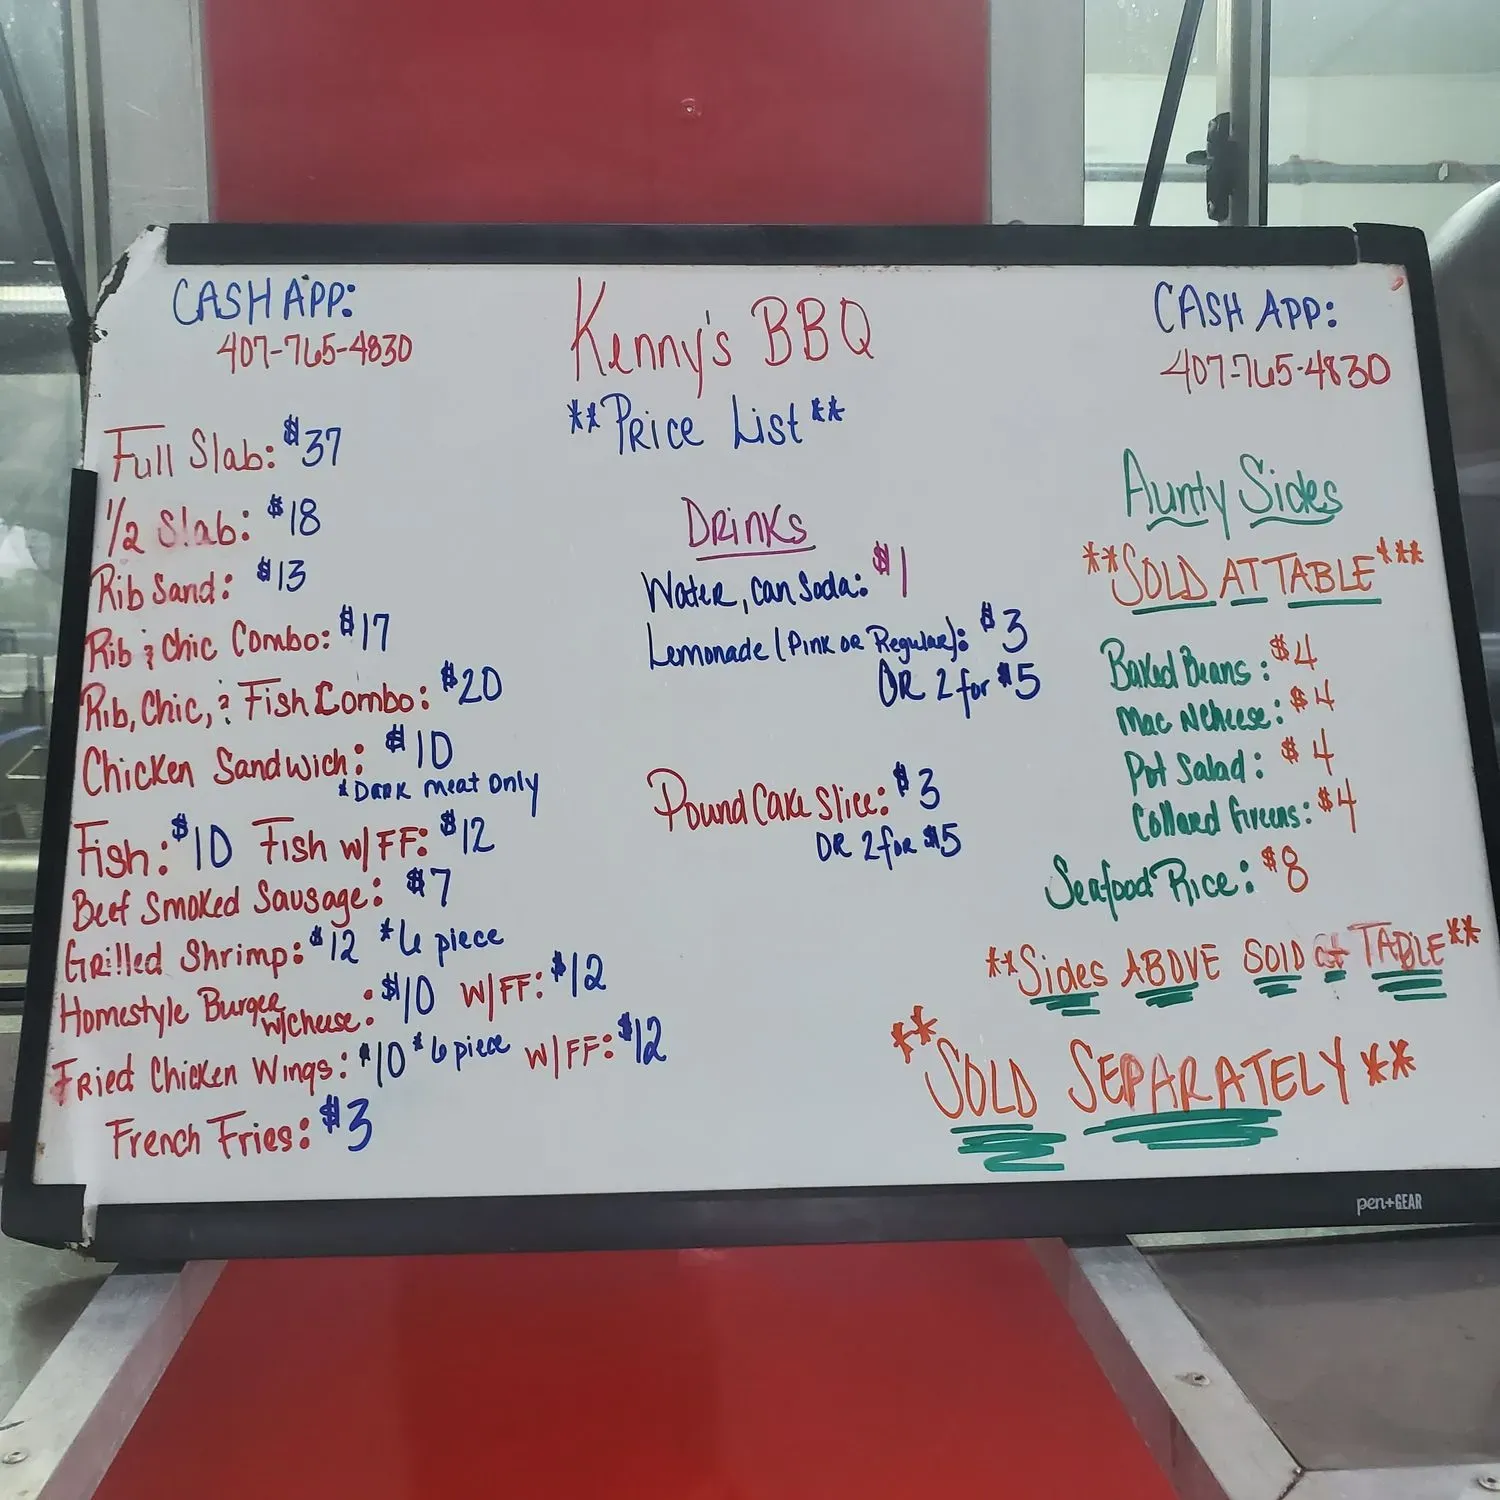 CASH APP:
407-765-4830
Kenny's BBQ
**Price List**
CASH APP:
407-765-4830
Full Slab: $37
1/2 Slab: $18
Rib Sand: $13
Rib & Chic Combo: $17
Rib, Chic, & Fish Combo: $20
Chicken Sandwich: $10
*Dark meat only
Fish: $10 Fish w/ FF: $12
Beef Smoked Sausage: $7
Grilled Shrimp: $12 *6 piece
Homestyle Burger w/cheese: $10 w/FF: $12
Fried Chicken Wings: $10 *6 piece w/FF: $12
French Fries: $3
Drinks
Water, can Soda: $1
Lemonade (Pink or Regular): $3
OR 2 for $5
Pound Cake Slice: $3
OR 2 for $5
Aunty Sides
**SOLD AT TABLE***
Baked Beans: $4
Mac N Cheese: $4
Pot Salad: $4
Collard Greens: $4
Seafood Rice: $8
**Sides ABOVE SOlD at TABLE**
**SOLD SEPARATELY**
pen+GEAR